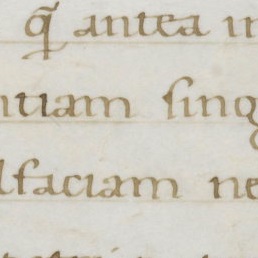 q̃ antea in
ntiam sing
lfaciam ne